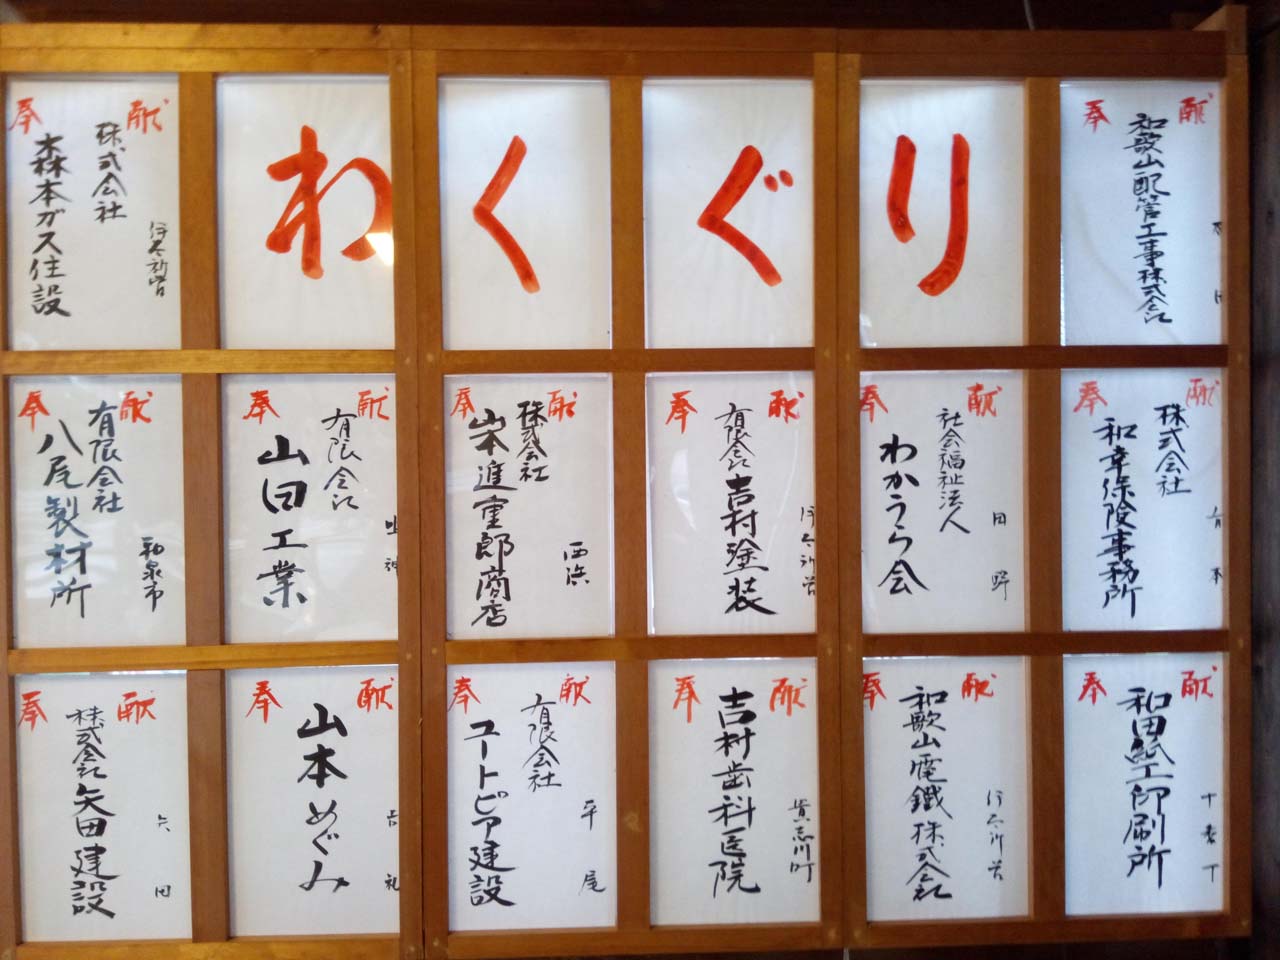 奉献
株式会社
森本ガス住設
伊太祈曽
わ
く
ぐ
り
奉献
和歌山配管工事株式会社
奉献
有限会社
八尾製材所
和泉市
奉献
有限会社
山田工業
奉献
株式会社
山本進重郎商店
西浜
奉献
有限会社吉村塗装
伊太祈曽
奉献
社会福祉法人
わかうら会
田野
奉献
株式会社
和幸保険事務所
有本
奉献
株式会社矢田建設
六田
奉献
山本めぐみ
吉礼
奉献
有限会社
ユートピア建設
平尾
奉献
吉村歯科医院
貴志川町
奉献
和歌山電鐵株式会社
伊太祈曽
奉献
和田紙工印刷所
十番丁